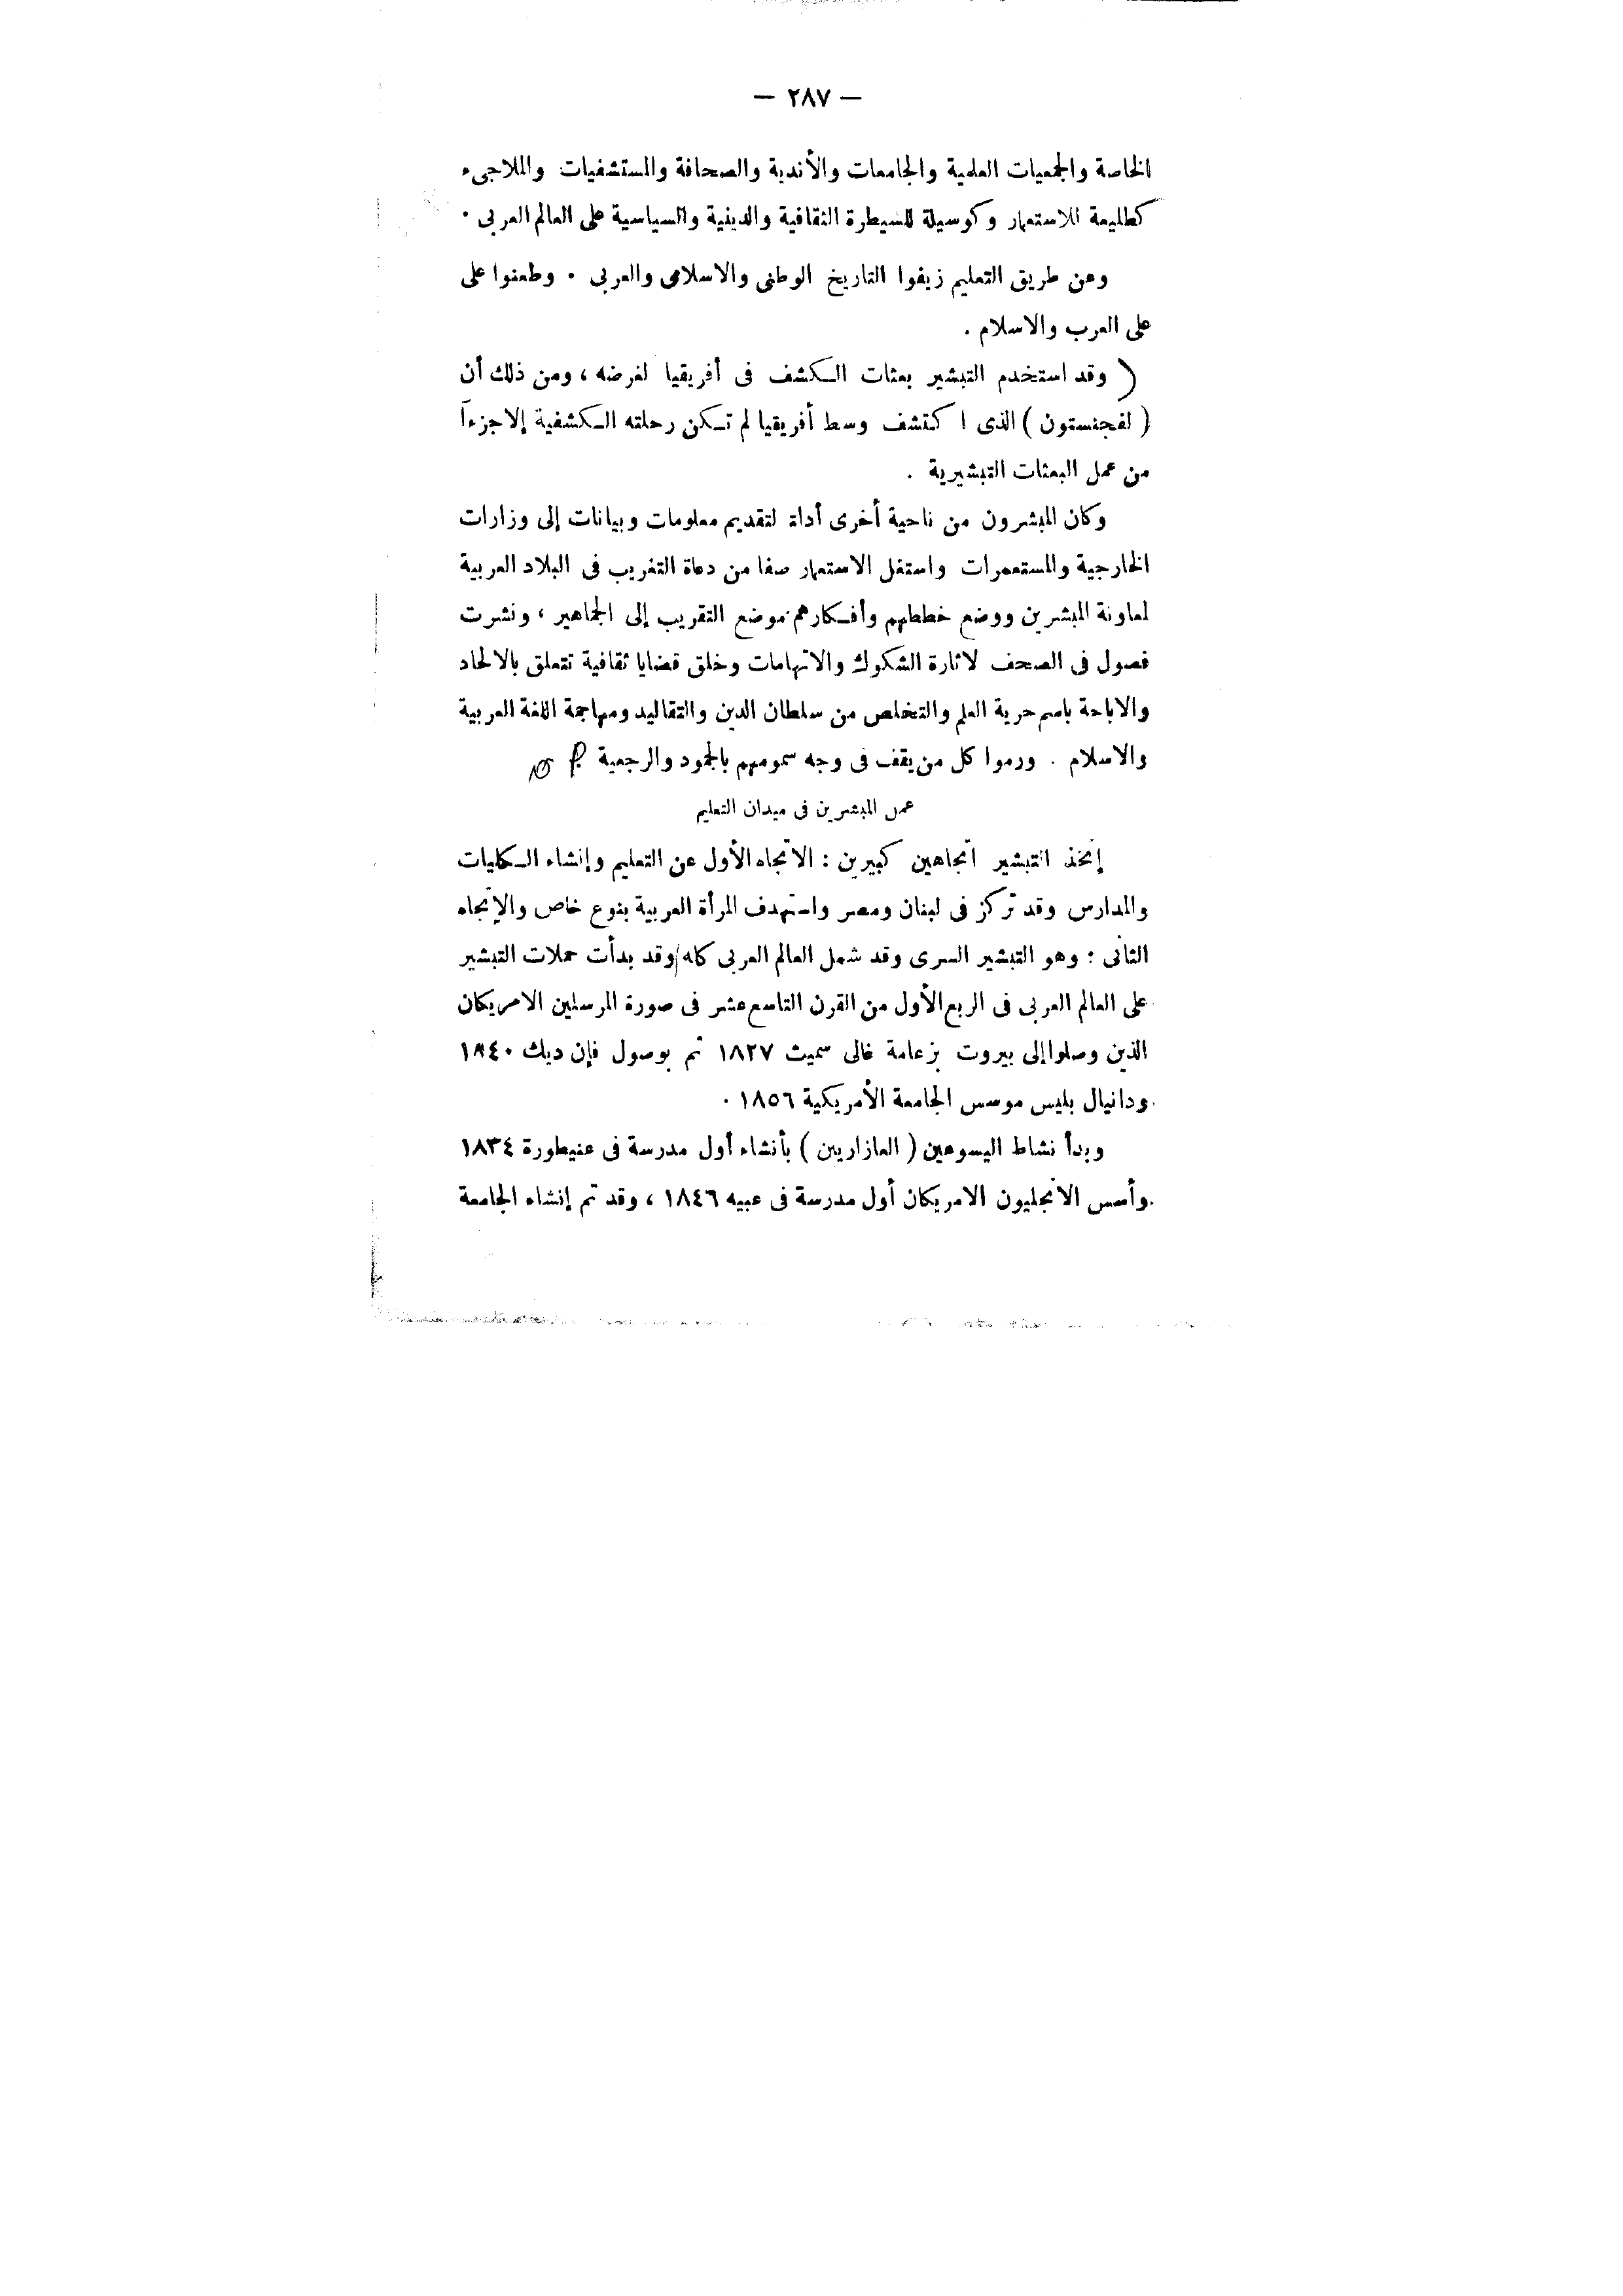 — ٢٨٧ —
الخاصة والجمعيات العلمية والجامعات والأندية والصحافة والمستشفيات والملاجىء
كطليعة للاستعمار وكوسيلة للسيطرة الثقافية والدينية والسياسية على العالم العربى .
وعن طريق التعليم زيفوا التاريخ الوطنى والاسلامى والعربى . وطعنوا على
على العرب والاسلام .
( وقد استخدم التبشير بعثات الكشف فى أفريقيا لغرضه ، ومن ذلك أن
( لفجنستون ) الذى اكتشف وسط أفريقيا لم تكن رحلته الكشفية إلا جزءاً
من عمل البعثات التبشيرية .
وكان المبشرون من ناحية أخرى أداة لتقديم معلومات وبيانات إلى وزارات
الخارجية والمستعمرات واستغل الاستعمار صفا من دعاة التغريب فى البلاد العربية
لمعاونة المبشرين ووضع خططهم وأفكارهم موضع التقريب إلى الجماهير ، ونشرت
فصول فى الصحف لاثارة الشكوك والاتهامات وخلق قضايا ثقافية تتعلق بالالحاد
والاباحة باسم حرية العلم والتخلص من سلطان الدين والتقاليد ومهاجمة اللغة العربية
والاسلام . ورموا كل من يقف فى وجه سمومهم بالجمود والرجعية
عمل المبشرين فى ميدان التعليم
إتخذ التبشير اتجاهين كبيرين : الاتجاه الأول عن التعليم وإنشاء الكليات
والمدارس وقد تركز فى لبنان ومصر واستهدف المرأة العربية بنوع خاص والإتجاه
الثانى : وهو التبشير السرى وقد شمل العالم العربى كله وقد بدأت حملات التبشير
على العالم العربى فى الربع الأول من القرن التاسع عشر فى صورة المرسلين الامريكان
الذين وصلوا إلى بيروت بزعامة غالى سميث ١٨٢٧ ثم بوصول فإن ديك ١٨٤٠
ودانيال بليس موسس الجامعة الأمريكية ١٨٥٦ .
وبدأ نشاط اليسوعين ( العازاريين ) بأنشاء أول مدرسة فى عنيطورة ١٨٣٤
وأسس الانجليون الامريكان أول مدرسة فى عبيه ١٨٤٦ ، وقد تم إنشاء الجامعة